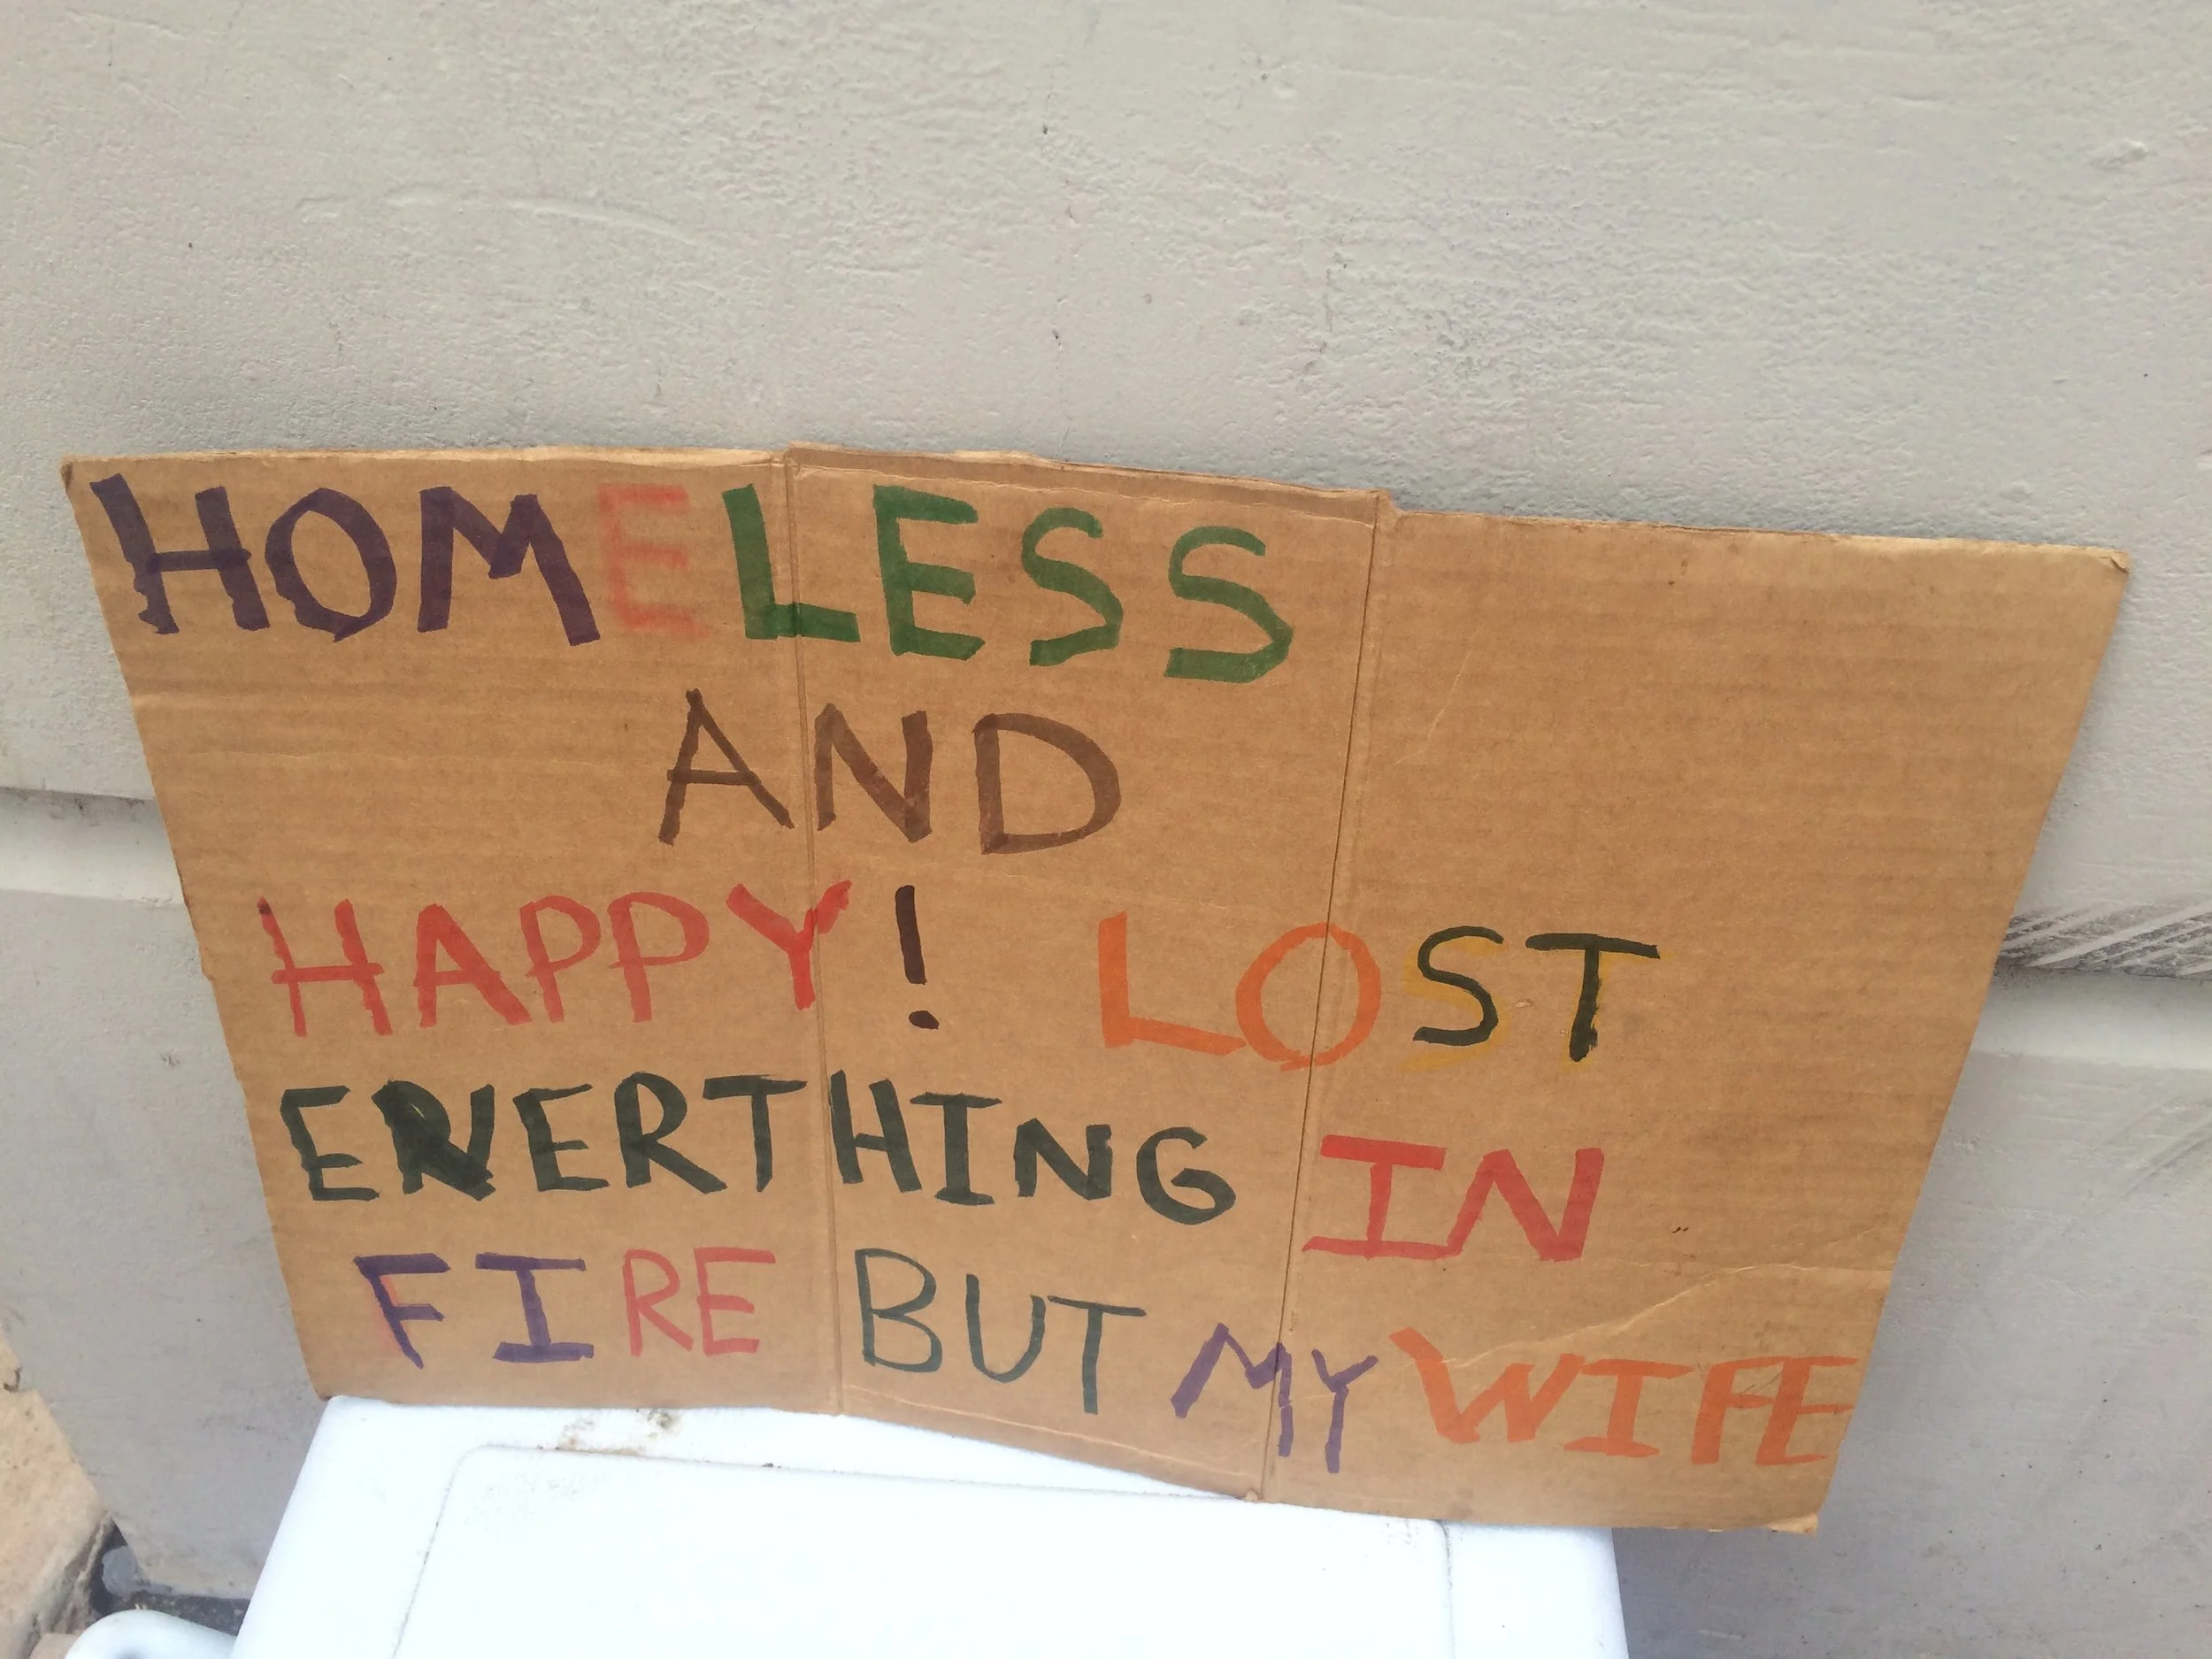 HOMELESS
AND
HAPPY! LOST
ENERTHING IN
FIRE BUT MY WIFE